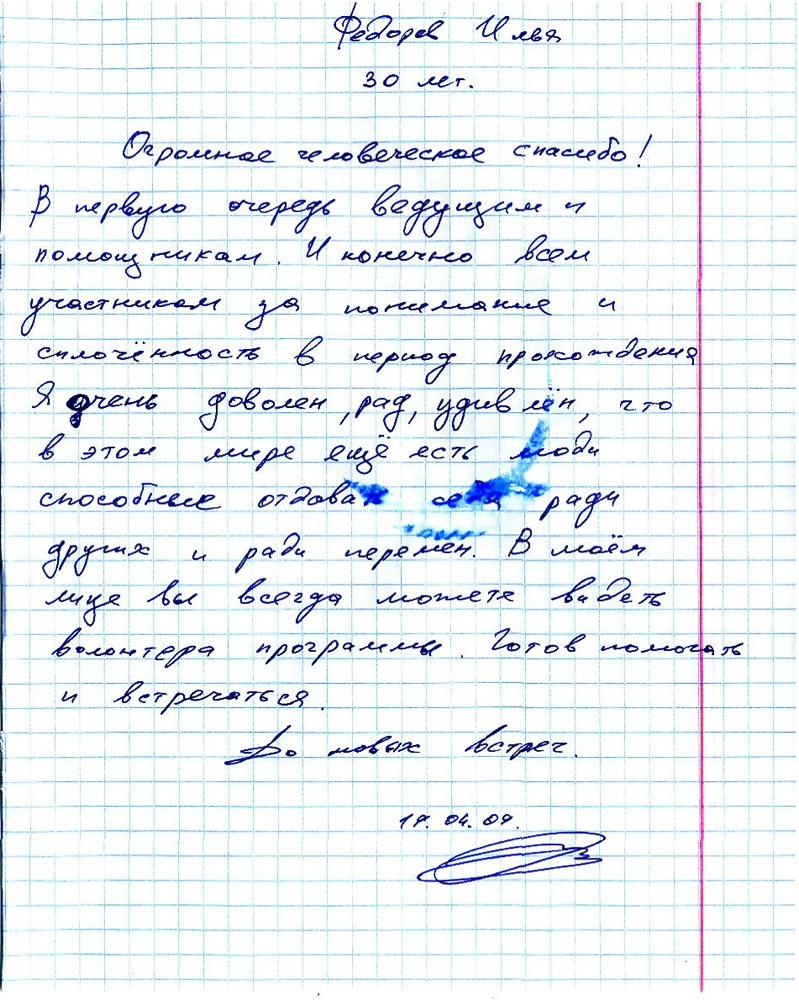 Федоров Илья
30 лет.
Огромное человеческое спасибо!
В первую очередь ведущим и
помощникам. И конечно всем
участникам за понимание и
сплочённость в период прохождения
Я очень доволен, рад, удивлён, что
в этом мире ещё есть люди
способные отдавать себя ради
других и ради перемен. В моём
лице вы всегда можете видеть
волонтера программы. Готов помогать
и встречаться.
До новых встреч.